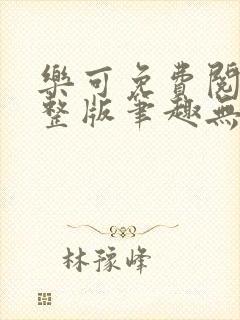 樂可免費閱
整版筆趣無
林豫峰